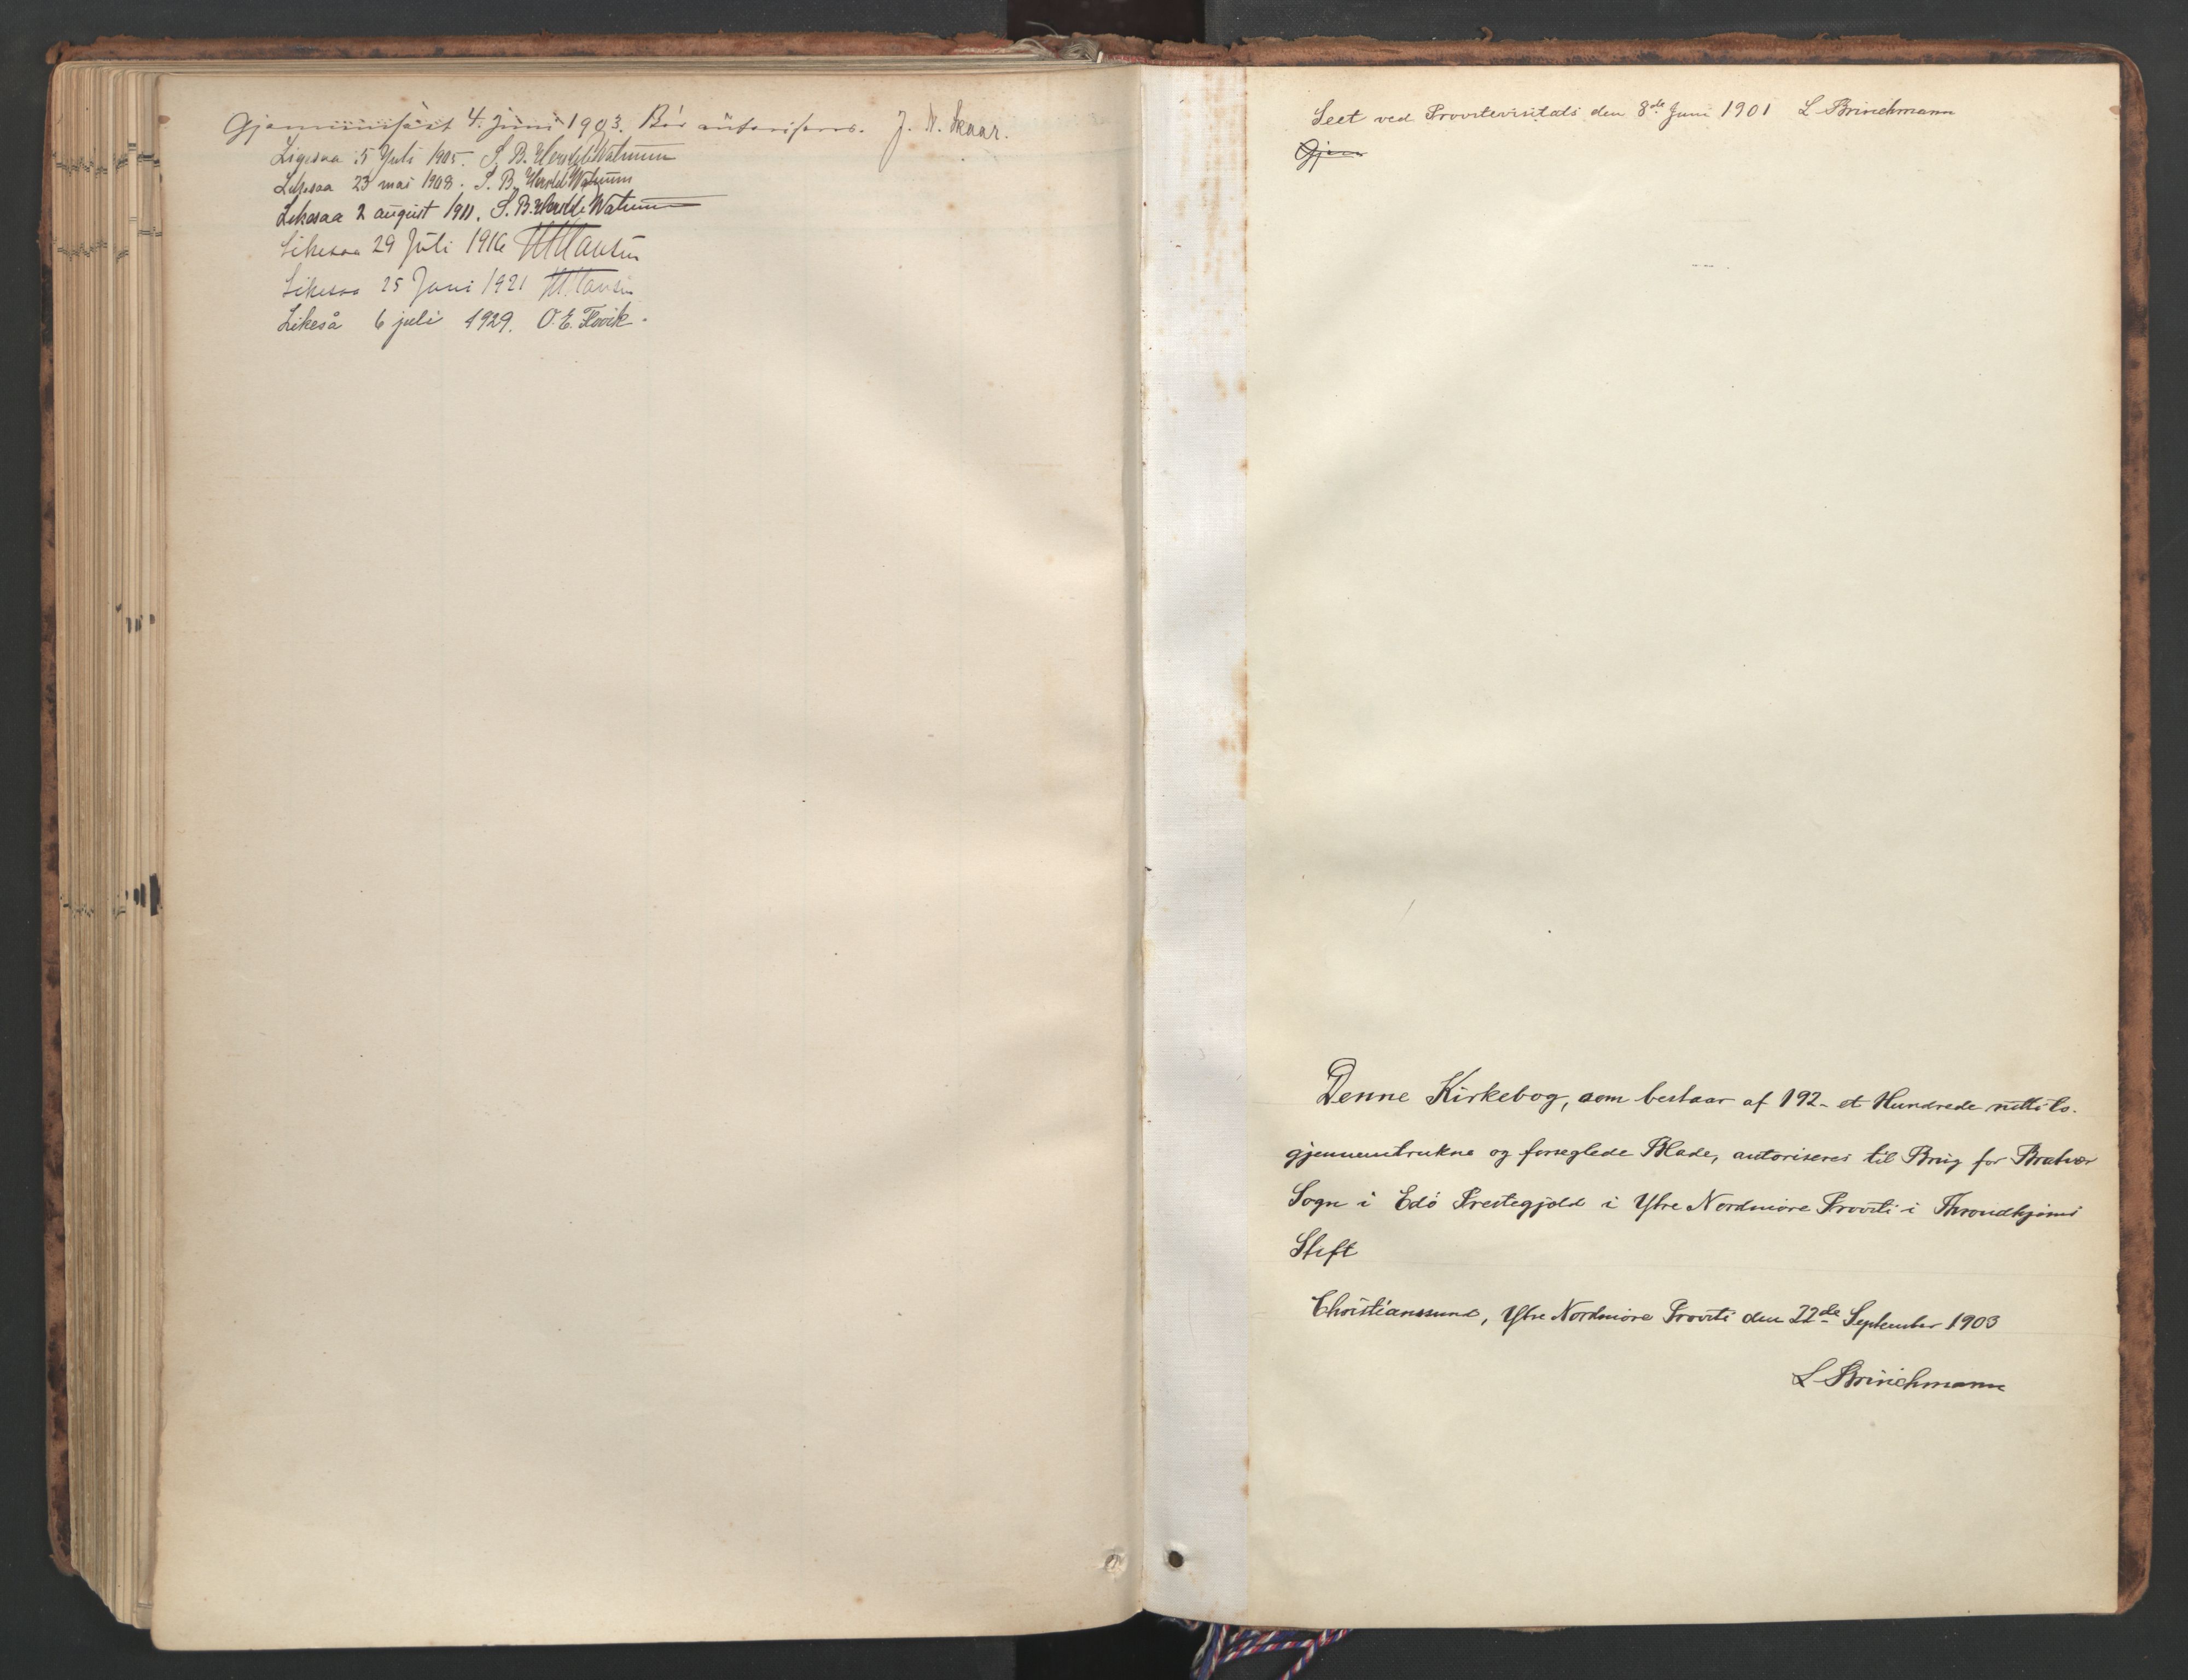 Gjennemseet 4. Juni 1903. Bör autoriseres. J. N. Skaar.
Ligesaa 5 Juli 1905. S. B. Hersleb Walnum
Likesaa 23 mai 1908. S. B. Hersleb Walnum
Likesaa 2 august 1911. S. B. Hersleb Walnum
Likesaa 29 Juli 1916
Likesaa 25 Juni 1921
Likeså 6 juli 1929. O. E.
Seet ved Provstevisitats den 8de Juni 1901 L Brinchmann
Gjen
Denne Kirkebog, som bestaar af 192 - et Hundrede nitti to.
gjennemtrukne og forseglede Blade, autoriseres til Brug for Bratvær
Sogn i Edö Prestegjæld i Ytre Nordmöre Provsti i Throndhjems
Stift
Christianssund, Ytre Nordmöre Provsti den 22de September 1903
L Brinchmann